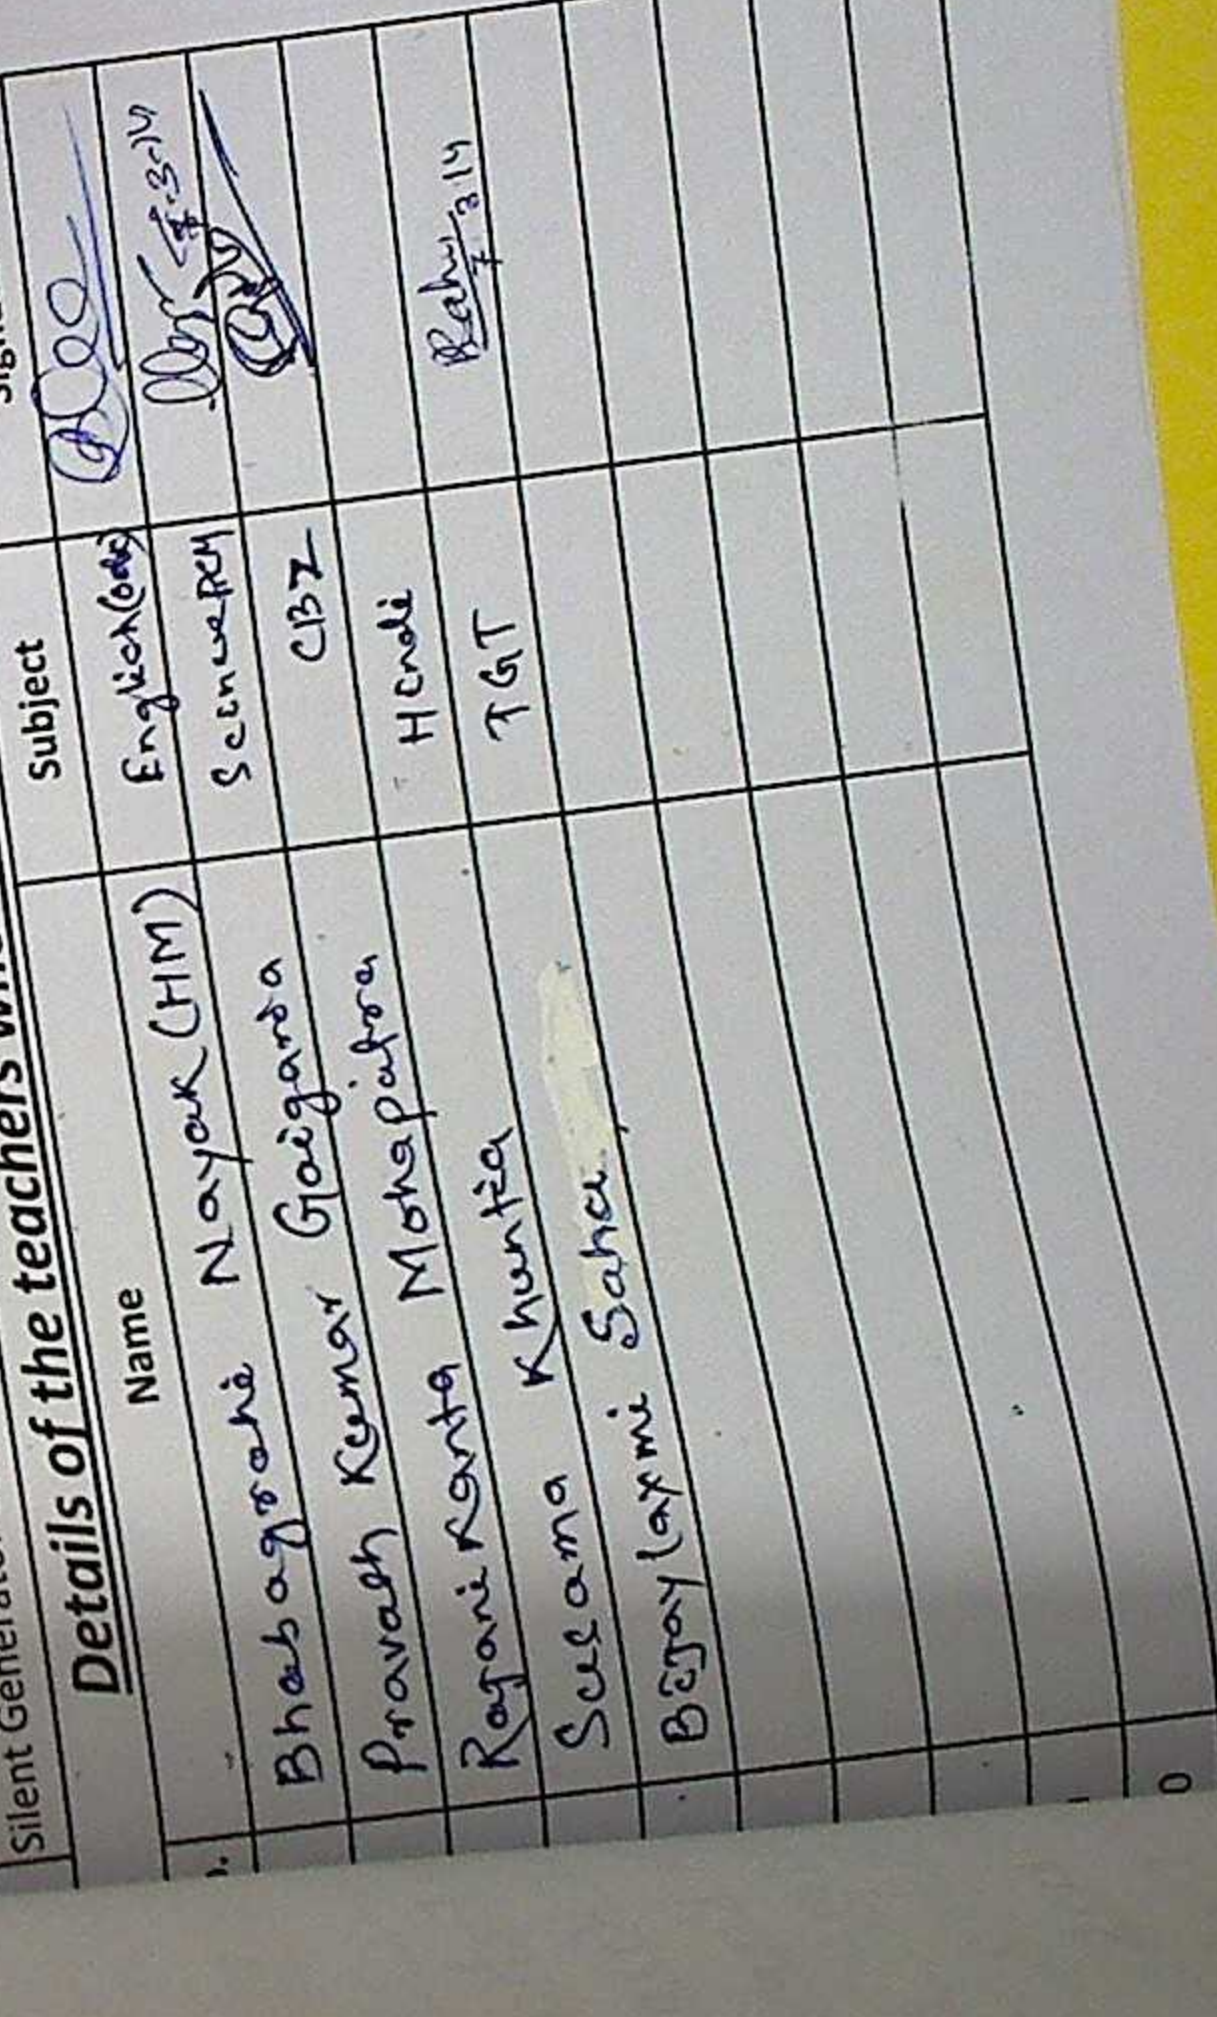 Silent Genera
Details of the teachers
Name Subject
Bhabagrahi Nayak (HM) English (Odia)
Pravash Kumar Gaigaria Science PCM
Rajani Kanta Mohapatra CBZ
Susama Khuntia Hindi
Bijaylaxmi Sahu TGT
7 3 14
0